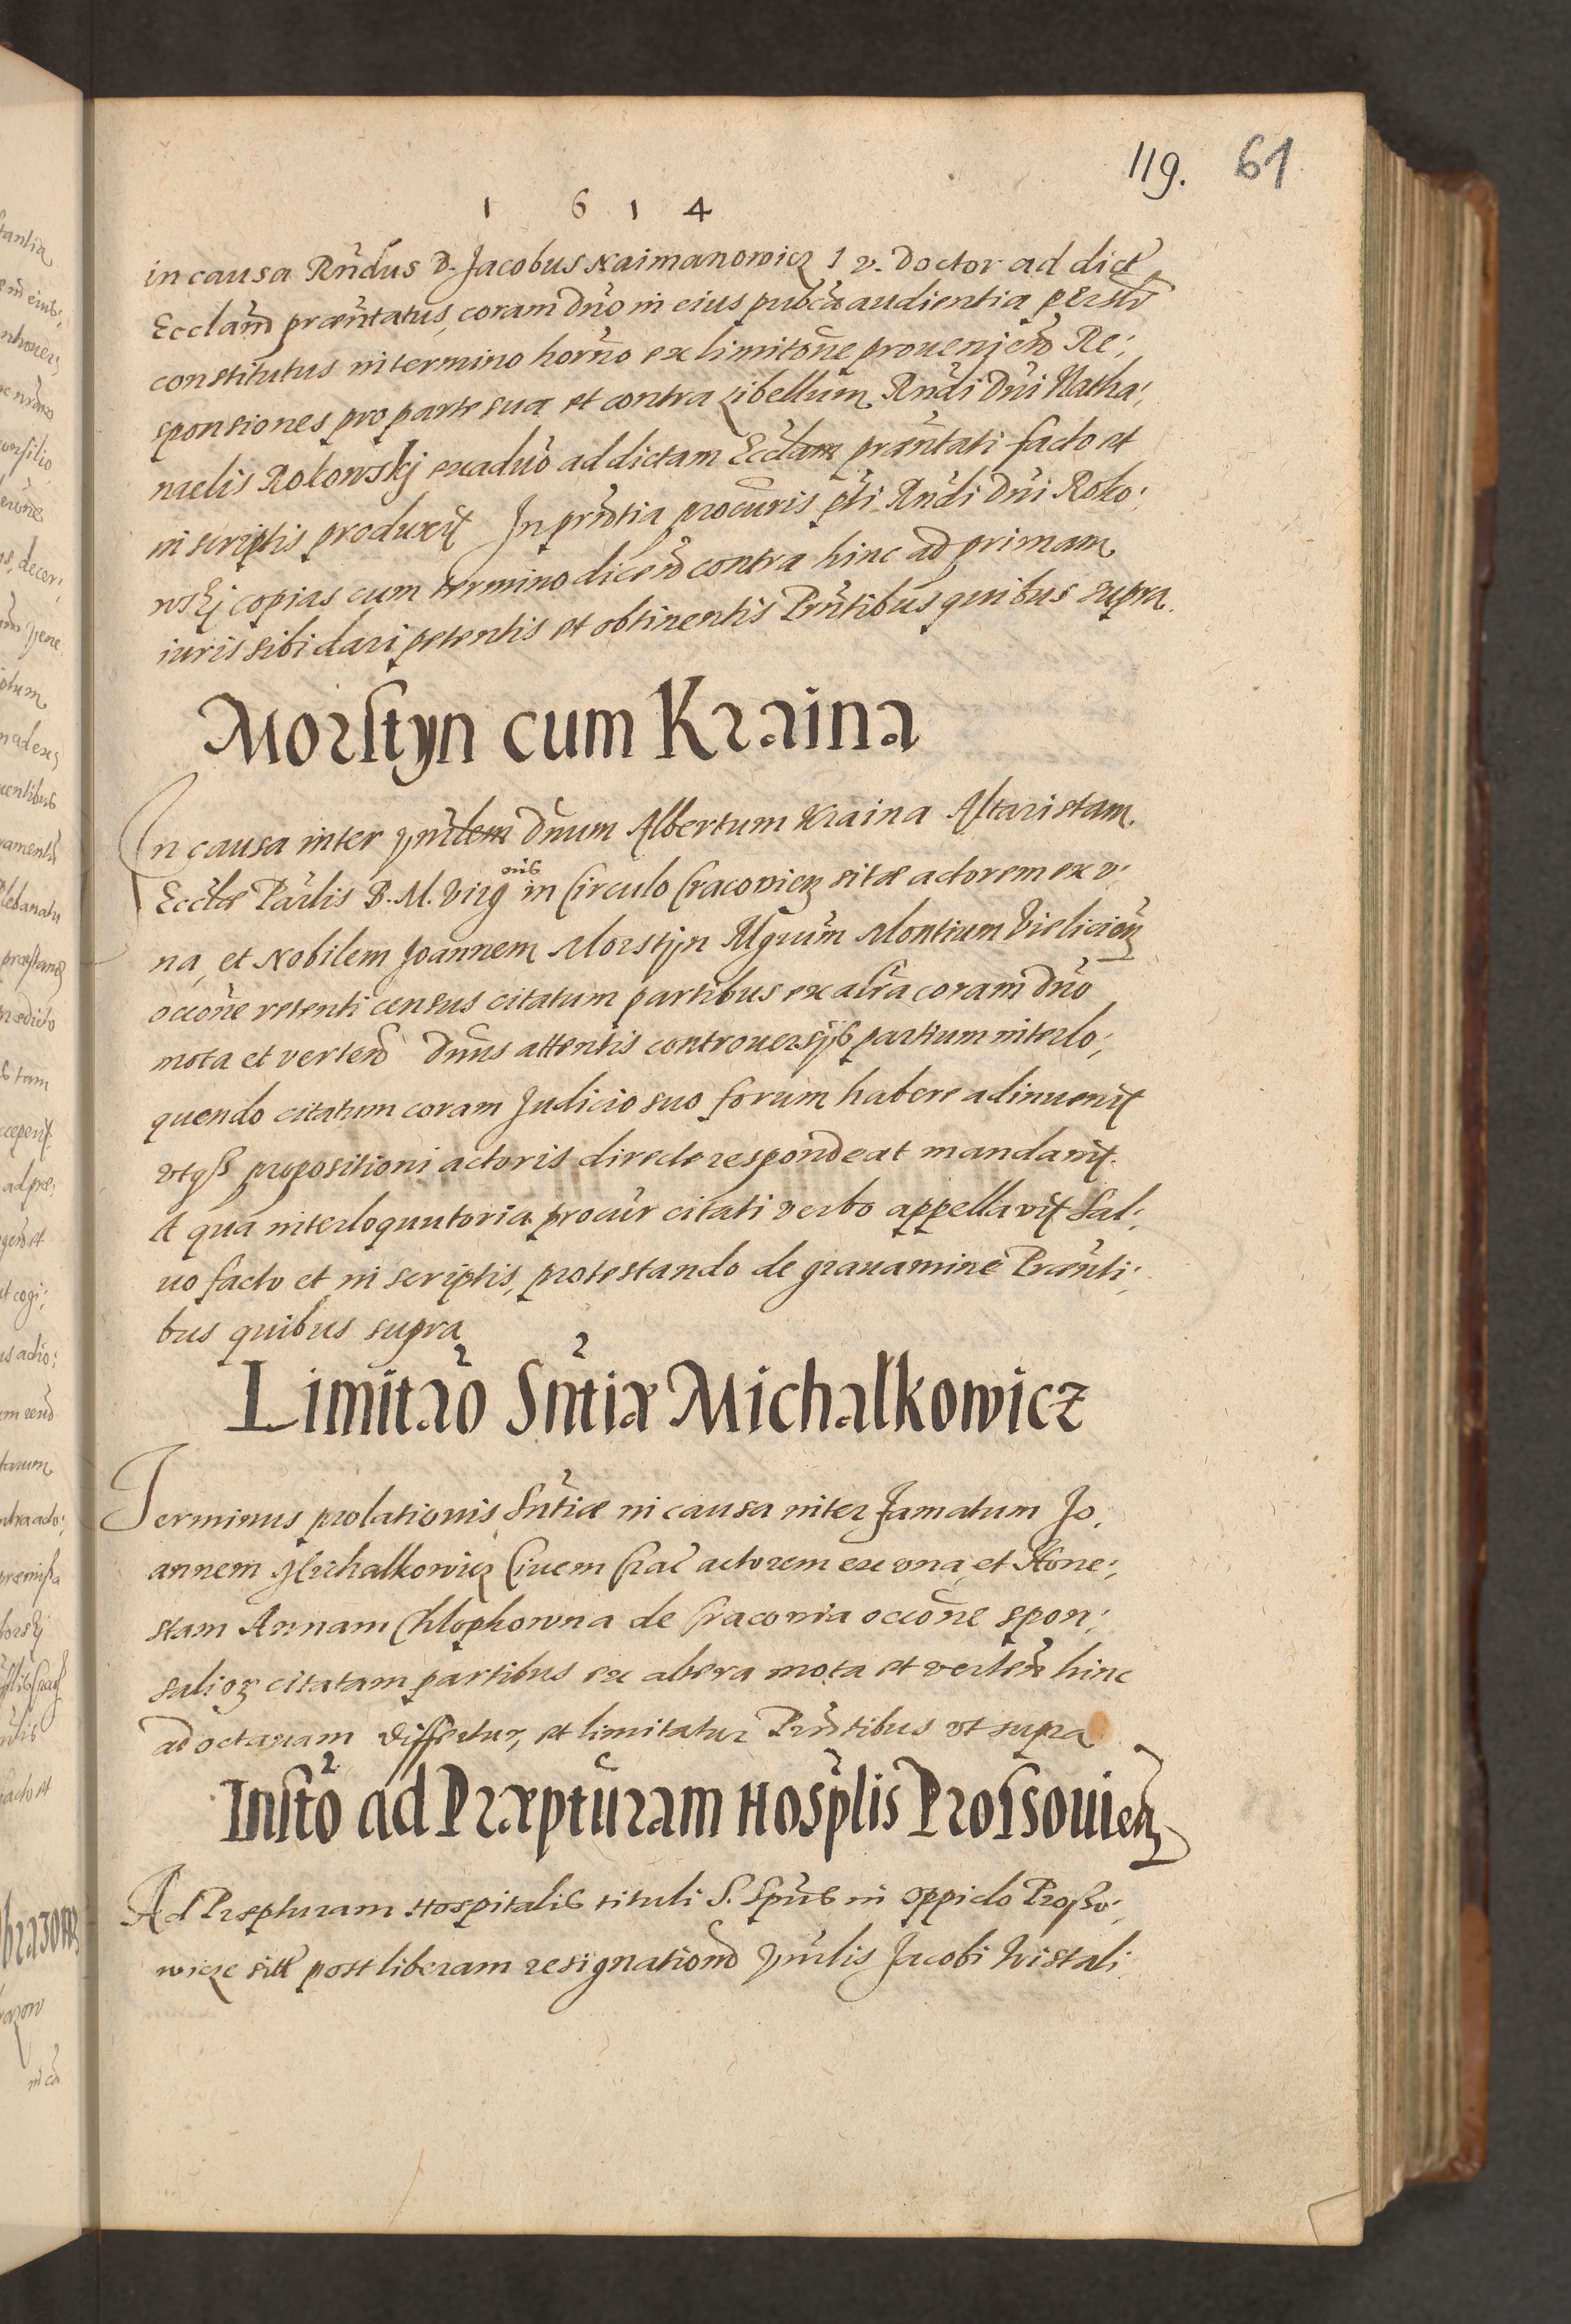 119. 61
1 6 1 4
in causa Rndus D. Jacobus Naimanowicz I v. Doctor ad dict
Ecclam præntatus, coram Dno in eius publica audientia perslr
constitutus in termino horno ex limitone proueniend Re:
sponsiones pro parte sua et contra Libellum Rndi Dni Natha:
naelis Rokowskj ex aduo ad dictam Ecclam præntati facto et
in scriptis produxit In prntia procuris pti Rndi Dni Roko:
wskj copias cum termino dicend contra hinc ad primam
iuris sibi dari petentis et obtinentis Prntibus quibus supra.
Morstyn cum Kraina
In causa inter Dnum Albertum Kraina Altaristam
Ecclæ Parlis B. M. Virginis in Circulo Cracovien sitæ actorem ex v:
na, et Nobilem Joannem Morstyn Mgrum Montium Vielicien
occone retenti census citatum partibus ex altra coram Dno
mota et verten Dnus attentis controuersijs partium interlo:
quendo citatum coram Judicio suo forum habere adinuenit
vtqß propositioni actoris directe respondeat mandauit.
A qua interloquutoria procur citati verbo appellavit Sal:
uo facto et in scriptis, protestando de grauamine Prænti:
bus quibus supra
Limitao Sntiæ Michalkowicz
Terminus prolationis Sntiæ in causa inter Famatum Jo:
annem Michalkowicz Ciuem Crac actorem ex vna, et Hone:
stam Annam Chlopkowna de Cracovia occone spon:
salior citatam partibus ex altera mota et verten hinc
ad octauam differtur, et limitatur Prntibus vt supra
Insto ad Præpturam Hosplis Prossouien
Ad Præpturam Hospitalis tituli S. Spus in oppido Proßo:
wicze sitt post liberam resignationem Jacobi Wistali